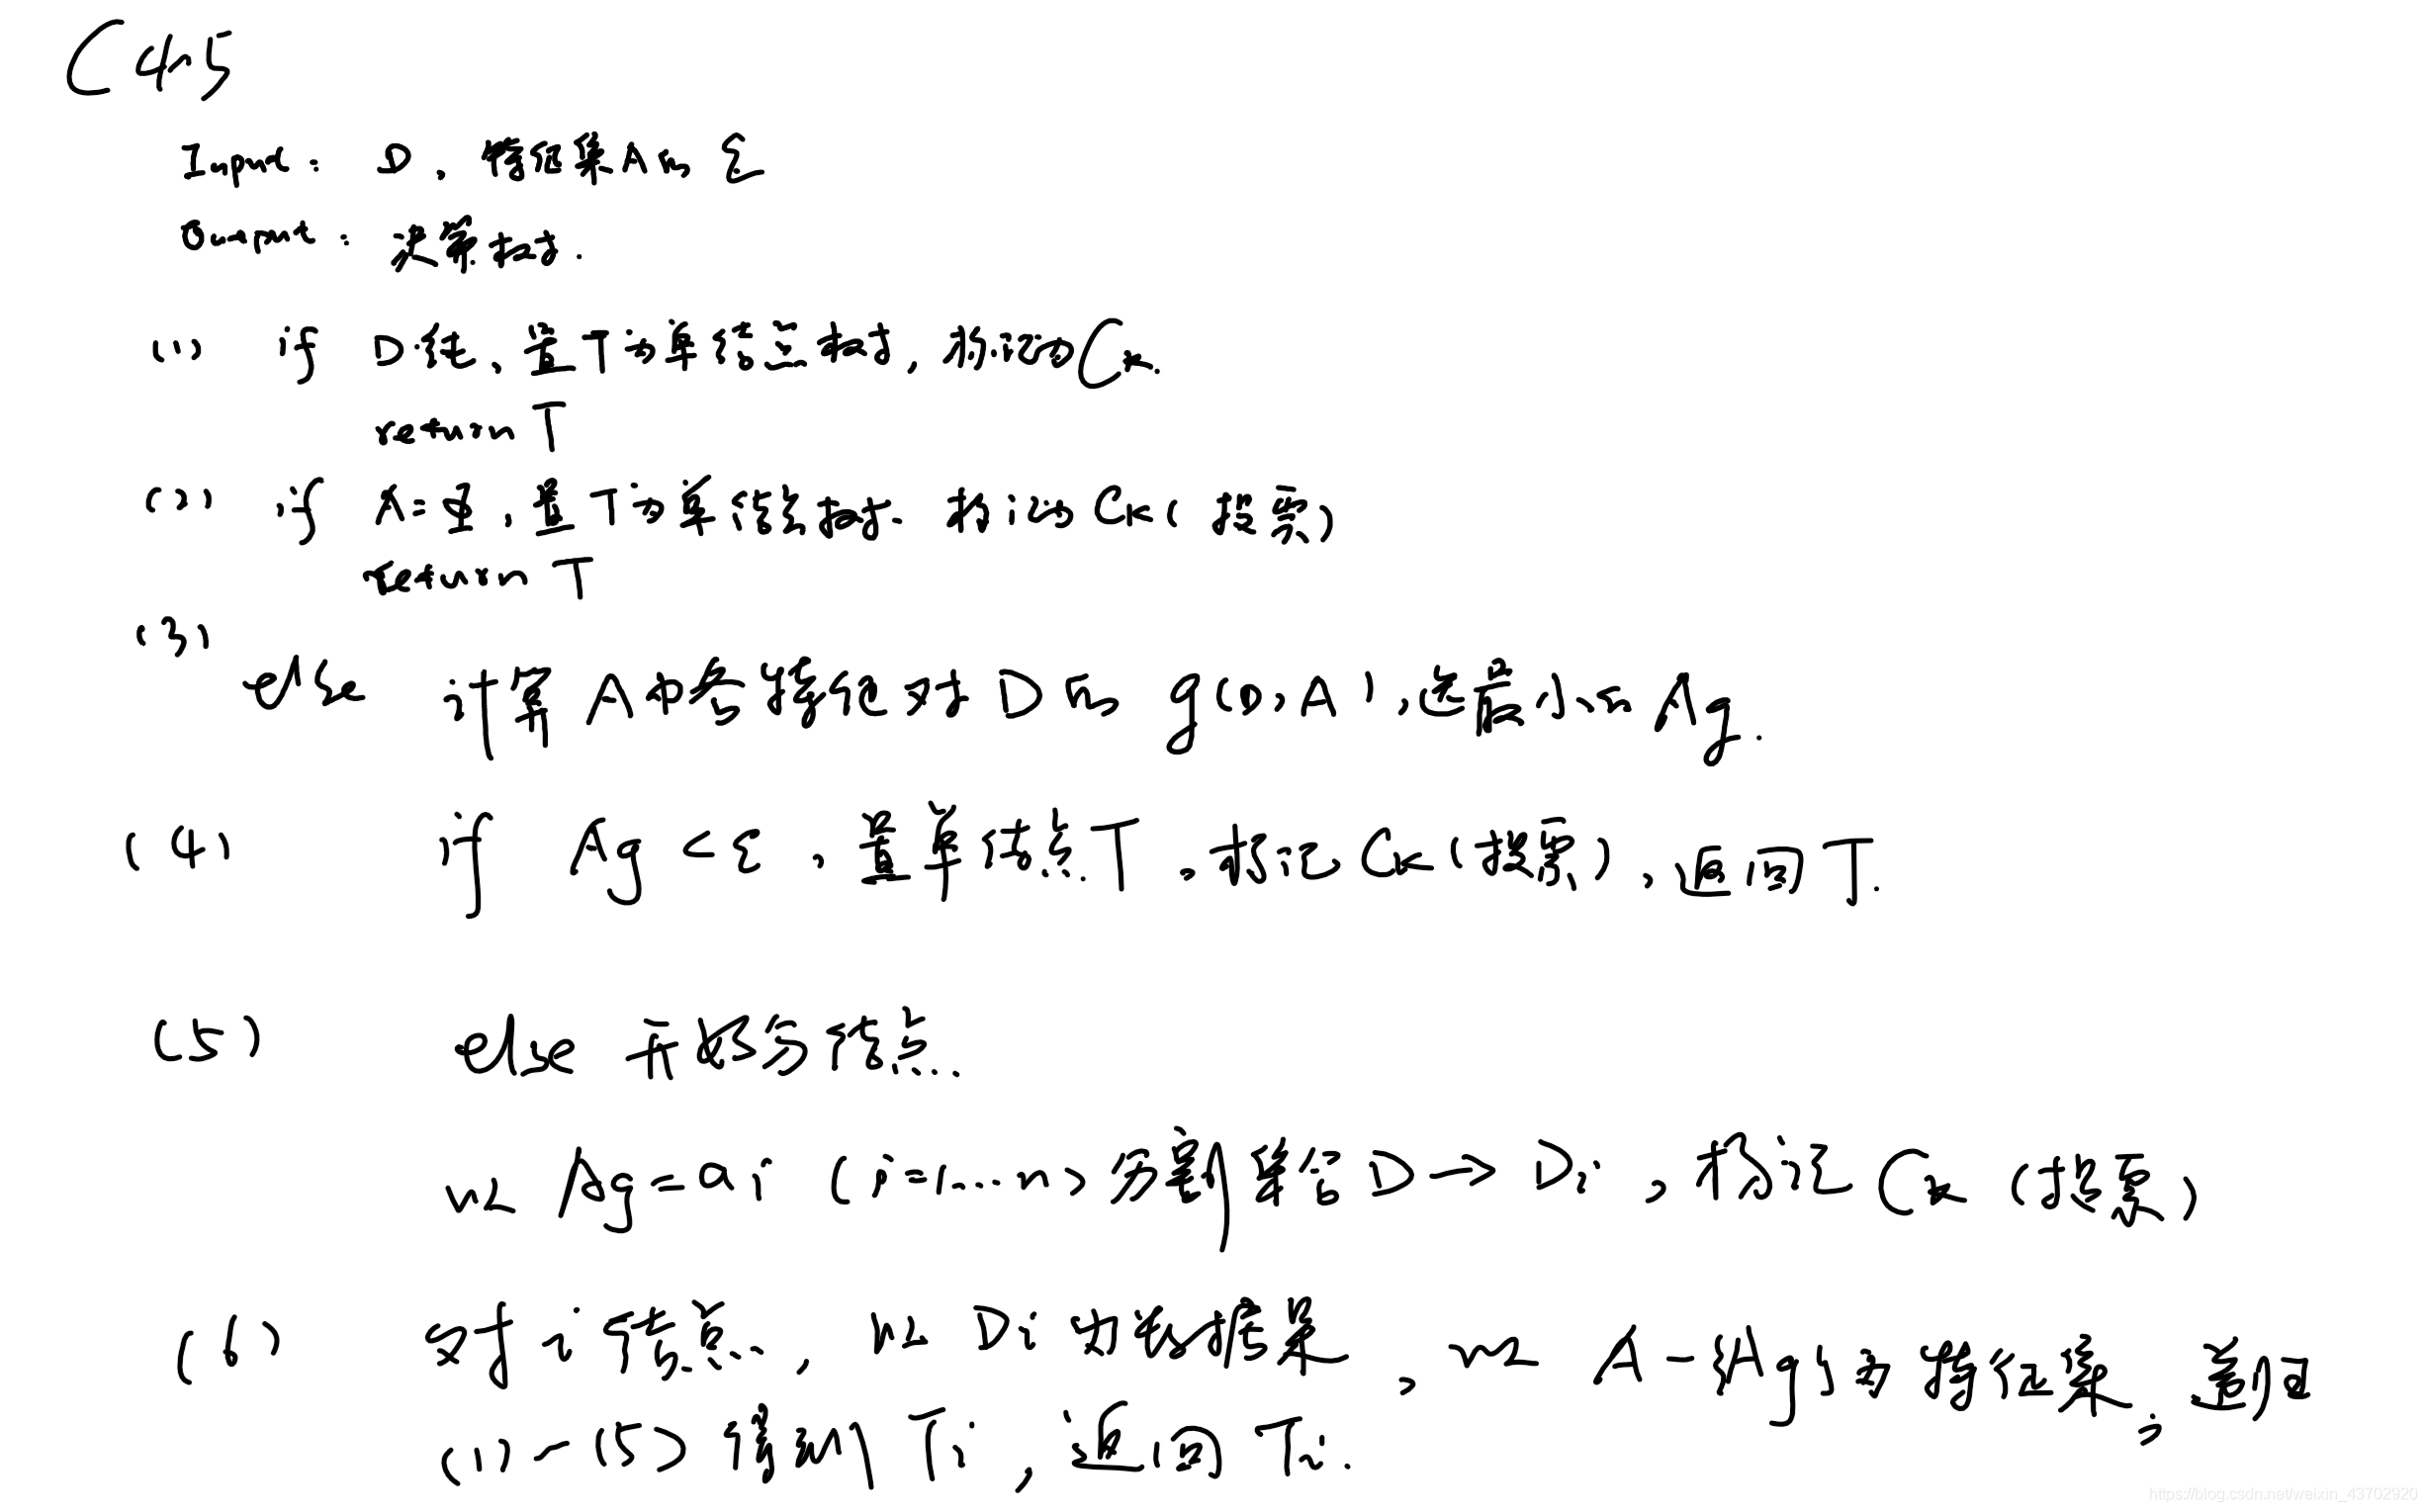 C4.5
Input: D, 特征集A, ε
Output: 决策树.
(1) if D 、置T为单结点树, 标记为Ck.
return T
(2) if A=Φ, 置T为单结点树. 标记为Ck(投票)
return T
(3)
else 计算A中各特征对D的g(D,A), 选最小的Ag.
(4) if Ag<ε, 置单结点T, 标记Ck(投票), 返回T.
(5) else 开始分结点.
以Ag=ai (i=1...n) 分割 D→Di, 标记Ck (投票)
(6) 对i结点, 以Di为 集, 以A-{Ag}为特征集,
(1)-(5) 得到Ti, 返回Ti.
https://blog.csdn.net/weixin_43702920